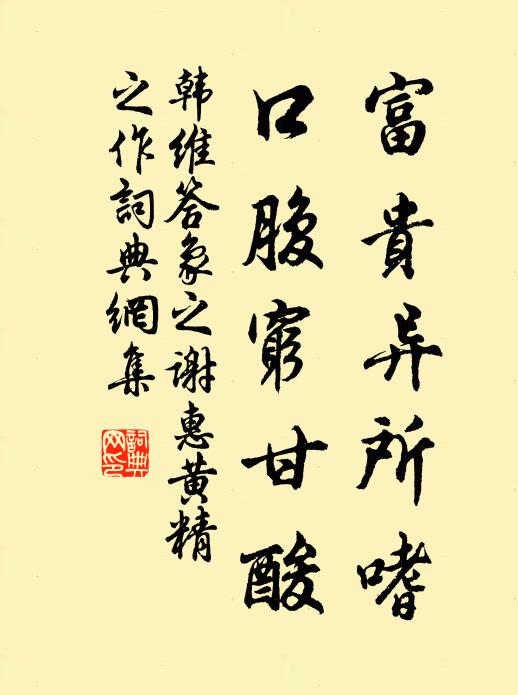 富貴异所嗜
口腹窮甘酸
韩維答象之謝惠黄精
之作詞典網集
詞典网印